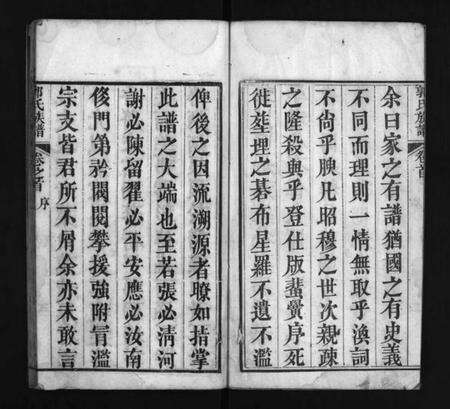 余曰家之有譜猶國之有史義
不同而理則一情無取乎渙詞
不尚乎腴凡昭穆之世次親疎
之隆殺與乎登仕版蜚黌序死
徙塟埋之碁布星羅不遺不濫
俾後之因流溯源者暸如指掌
此譜之大端也至若張必清河
謝必陳留翟必平安應必汝南
侈門第矜閥閱攀援強附冐濫
宗支皆君所不屑余亦未敢言
氏族譜
卷之首
序